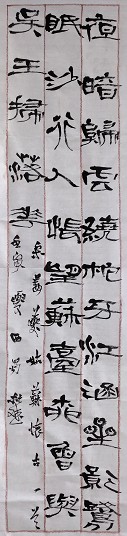 夜暗歸云繞柁牙江涵星影鷺
眠沙行人悵望蘇臺柳曾與
吳王掃落花
宋姜夔姑蘇懷古一首